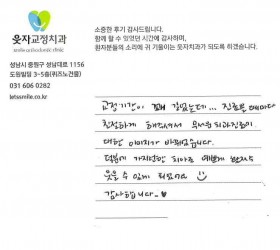 소중한 후기 감사드립니다.
함께 할 수 있었던 시간에 감사하며,
환자분들의 소리에 귀 기울이는 웃자교정치과가 되도록 하겠습니다.
웃자교정치과
smile orthodontic clinic
성남시 중원구 성남대로 1156
도원빌딩 3-5층(퀴즈노건물)
031 606 0282
letssmile.co.kr
교정기간이 꽤 길었는데... 진료볼 때마다
친절하게 해주셔서 무서운 치과진료에
대한 이미지가 바뀌었습니다.
덕분에 가지런한 치아로 예쁘게
웃을 수 있게 되었어요
감사합니다~♥